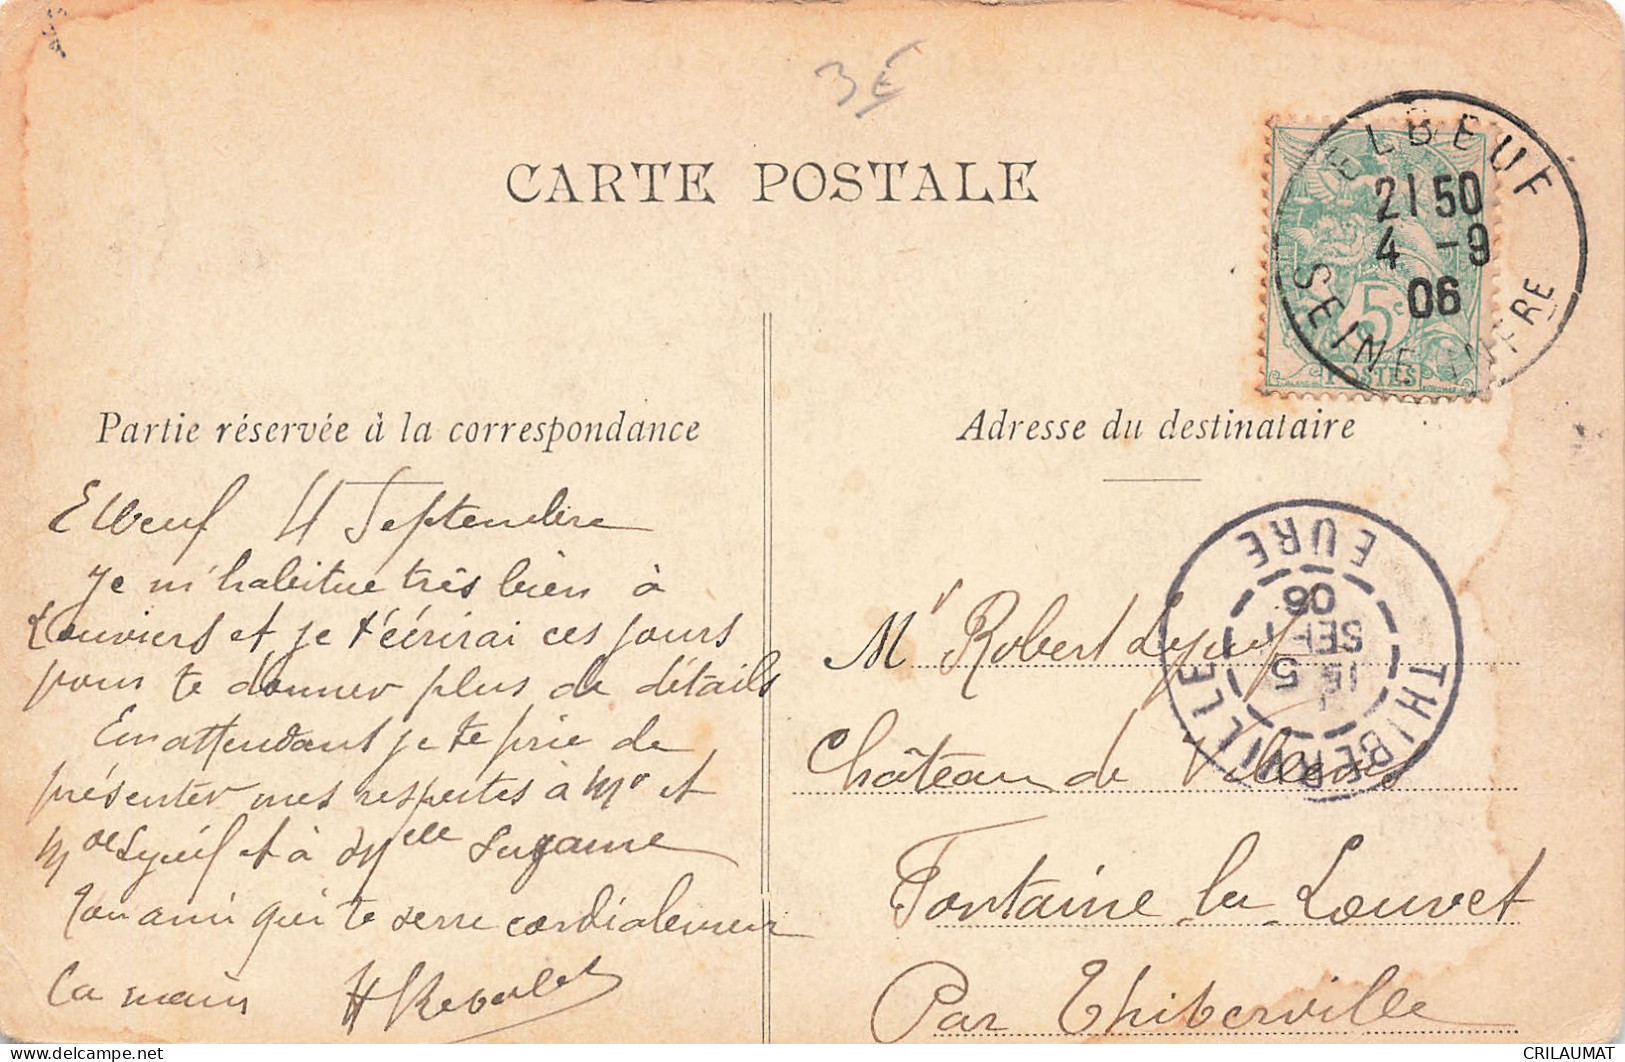 3€
CARTE POSTALE
ELBEUF
21 50
4 -9
06
SEINE INFRE
5c
POSTES
Partie réservée à la correspondance
Adresse du destinataire
Elbeuf 4 Septembre
Je m'habitue très bien à
Louviers et je t'écrirai ces jours
pour te donner plus de détails
En attendant je te prie de
présenter mes respectes à Mr et
Mde et à Melle Suzanne
Ton ami qui te serre cordialement
la main H
THIBERVILLE
5
SEPT
06
EURE
Mr Robert
Château de
Fontaine la Louvet
Par Thiberville
CRILAUMAT